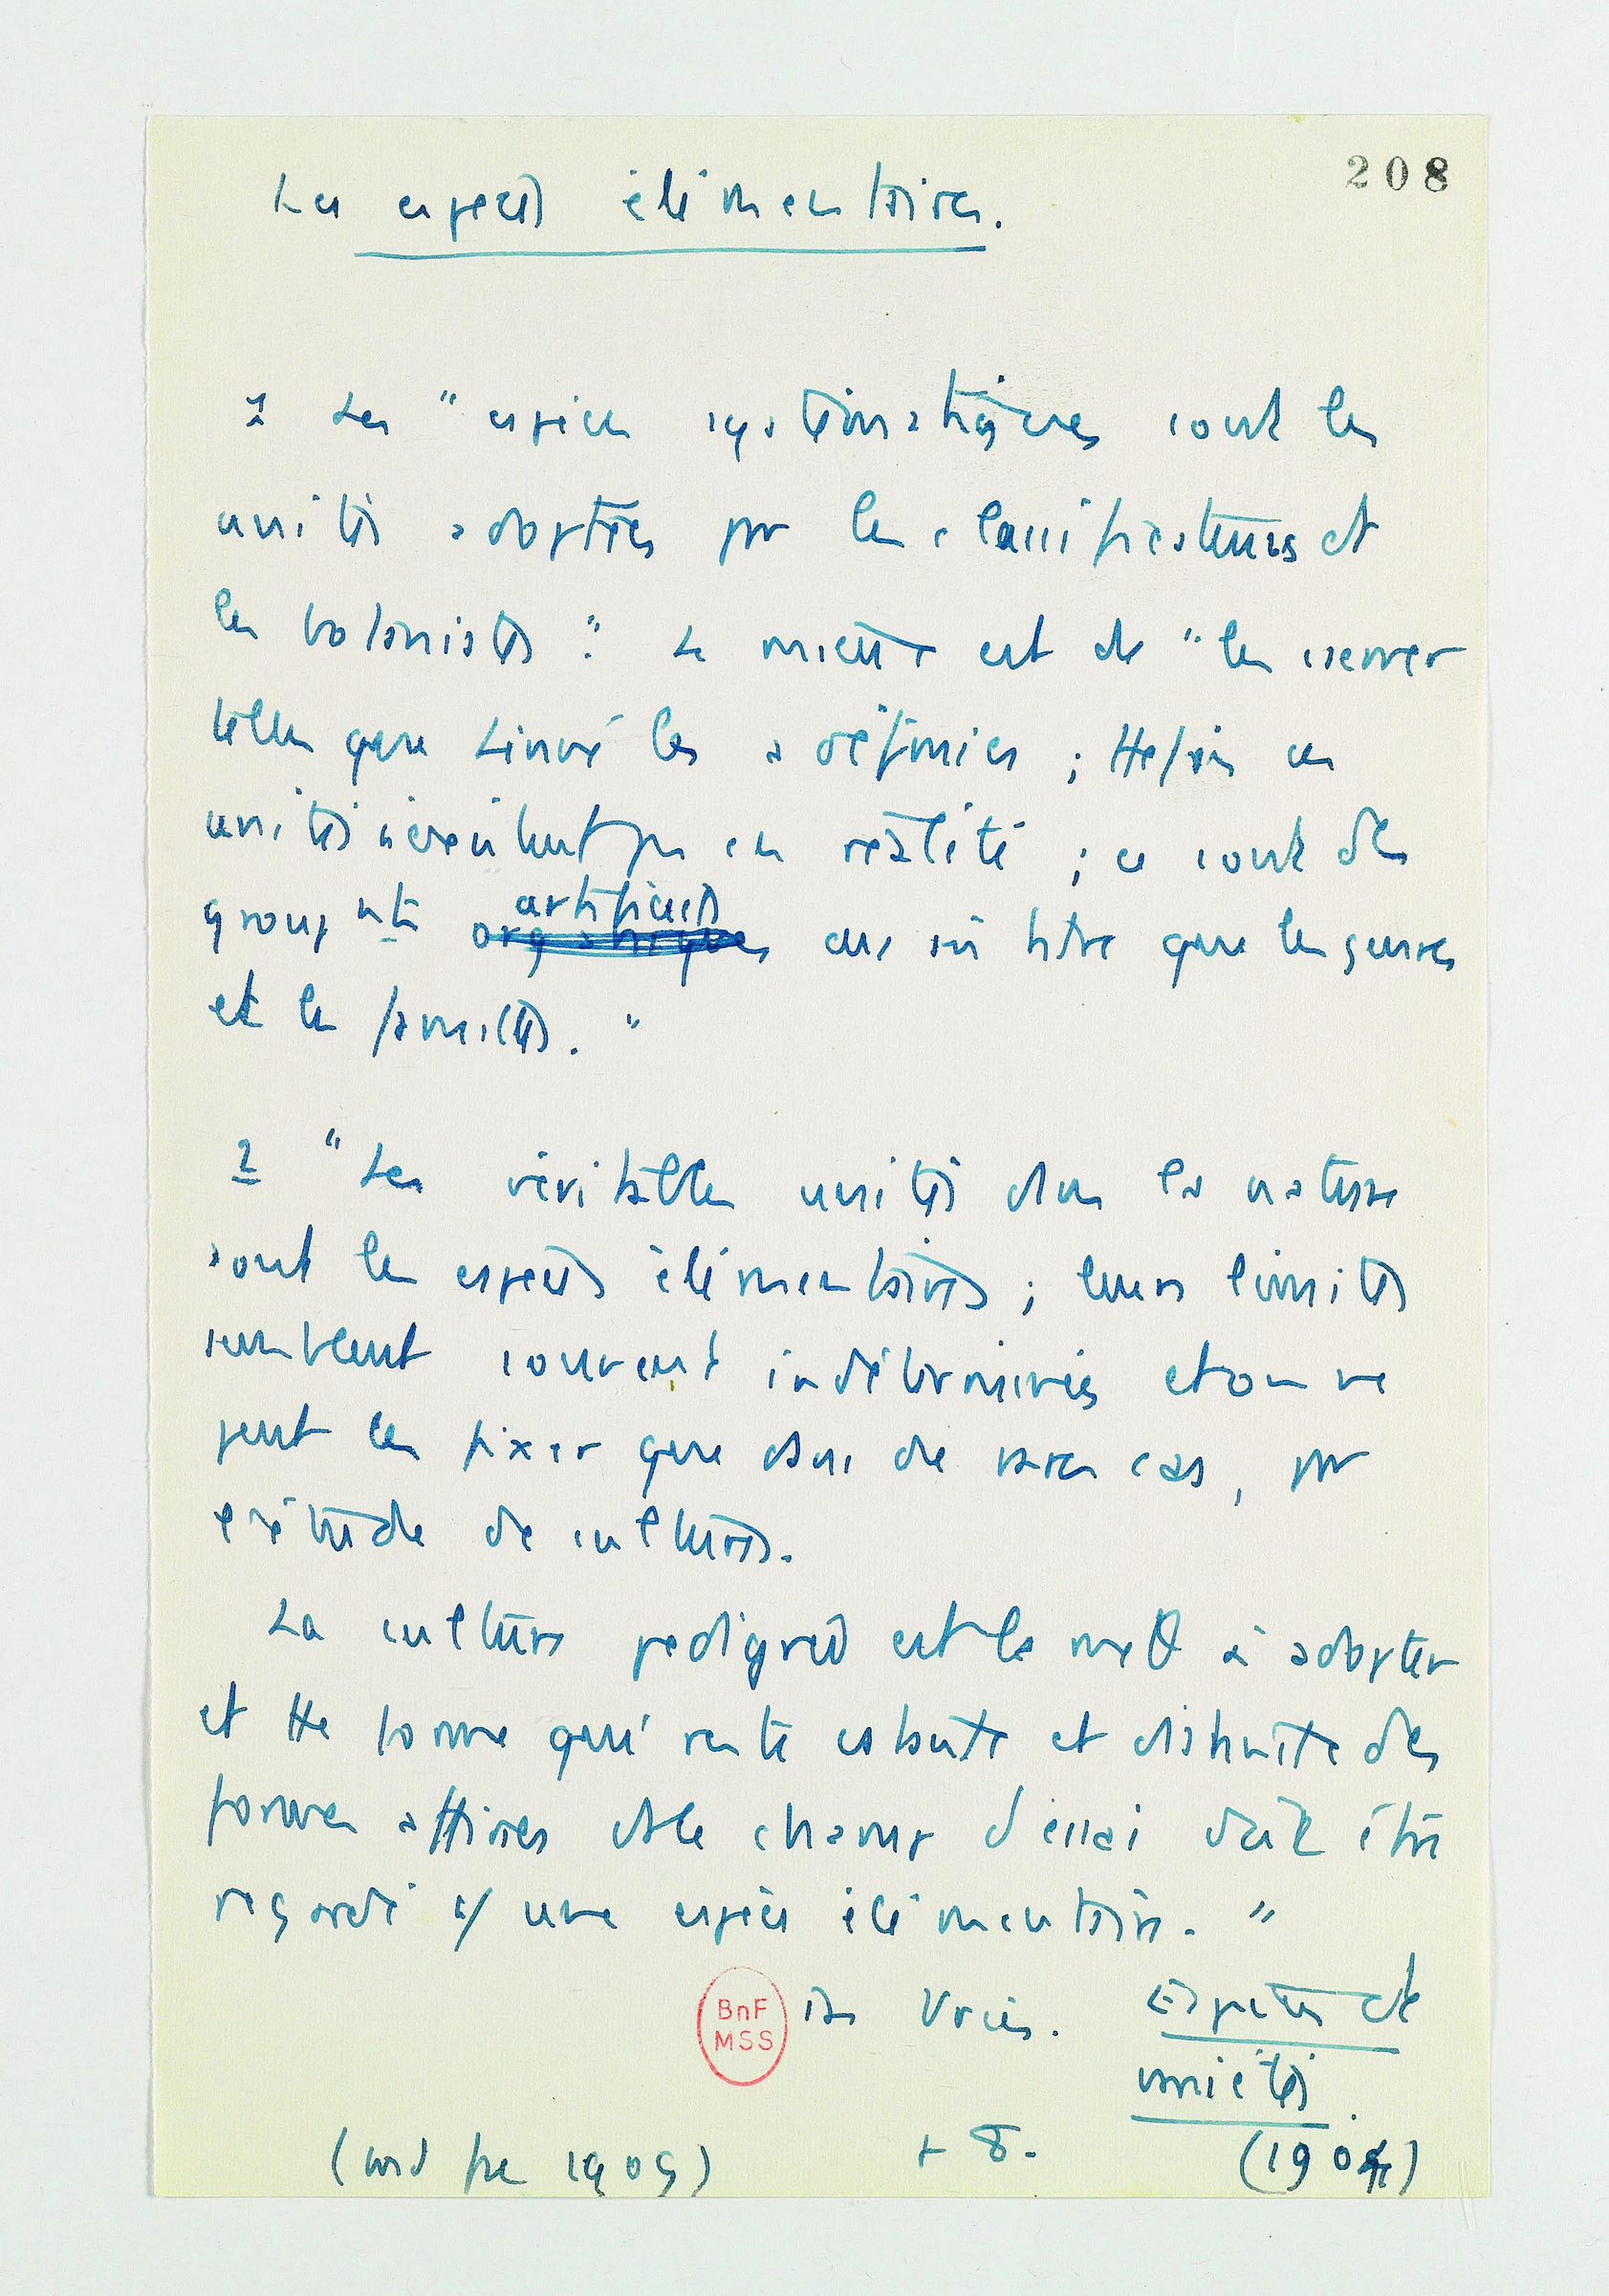 208
Les espèces élémentaires.
1 Les "espèces systématiques sont les
unités adoptées par les classificateurs et
les botanistes". Le mieux est de "les conserver
telles que Linné les a définies ; ces
unités n'existent pas en réalité ; ce sont des
groupᵗˢ artificiels organiques aussi bien que les genres
et les familles."
2 "Les véritables unités dans la nature
sont les espèces élémentaires ; leurs limites
semblent souvent indéterminées et on ne
peut les fixer que dans de rares cas, par
l'étude de cultures.
La culture pedigree est la méth à adopter
et tte forme qui reste cstante et distincte des
formes affines ds le champ d'essai doit être
regardé c/ une espèce élémentaire."
BnF
MSS
De Vries. Espèces et
variétés.
(trad fse 1909) p 8. (1904)